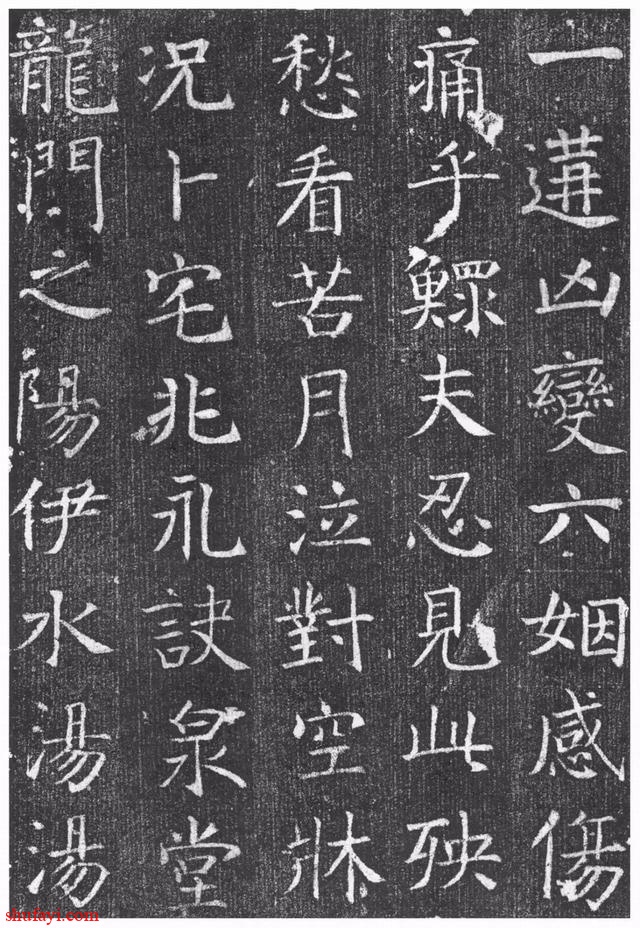 一遘凶變六姻感傷
痛乎鰥夫忍見此殃
愁看苦月泣對空牀
况卜宅兆永訣泉堂
龍門之陽伊水湯湯
shufayi.com